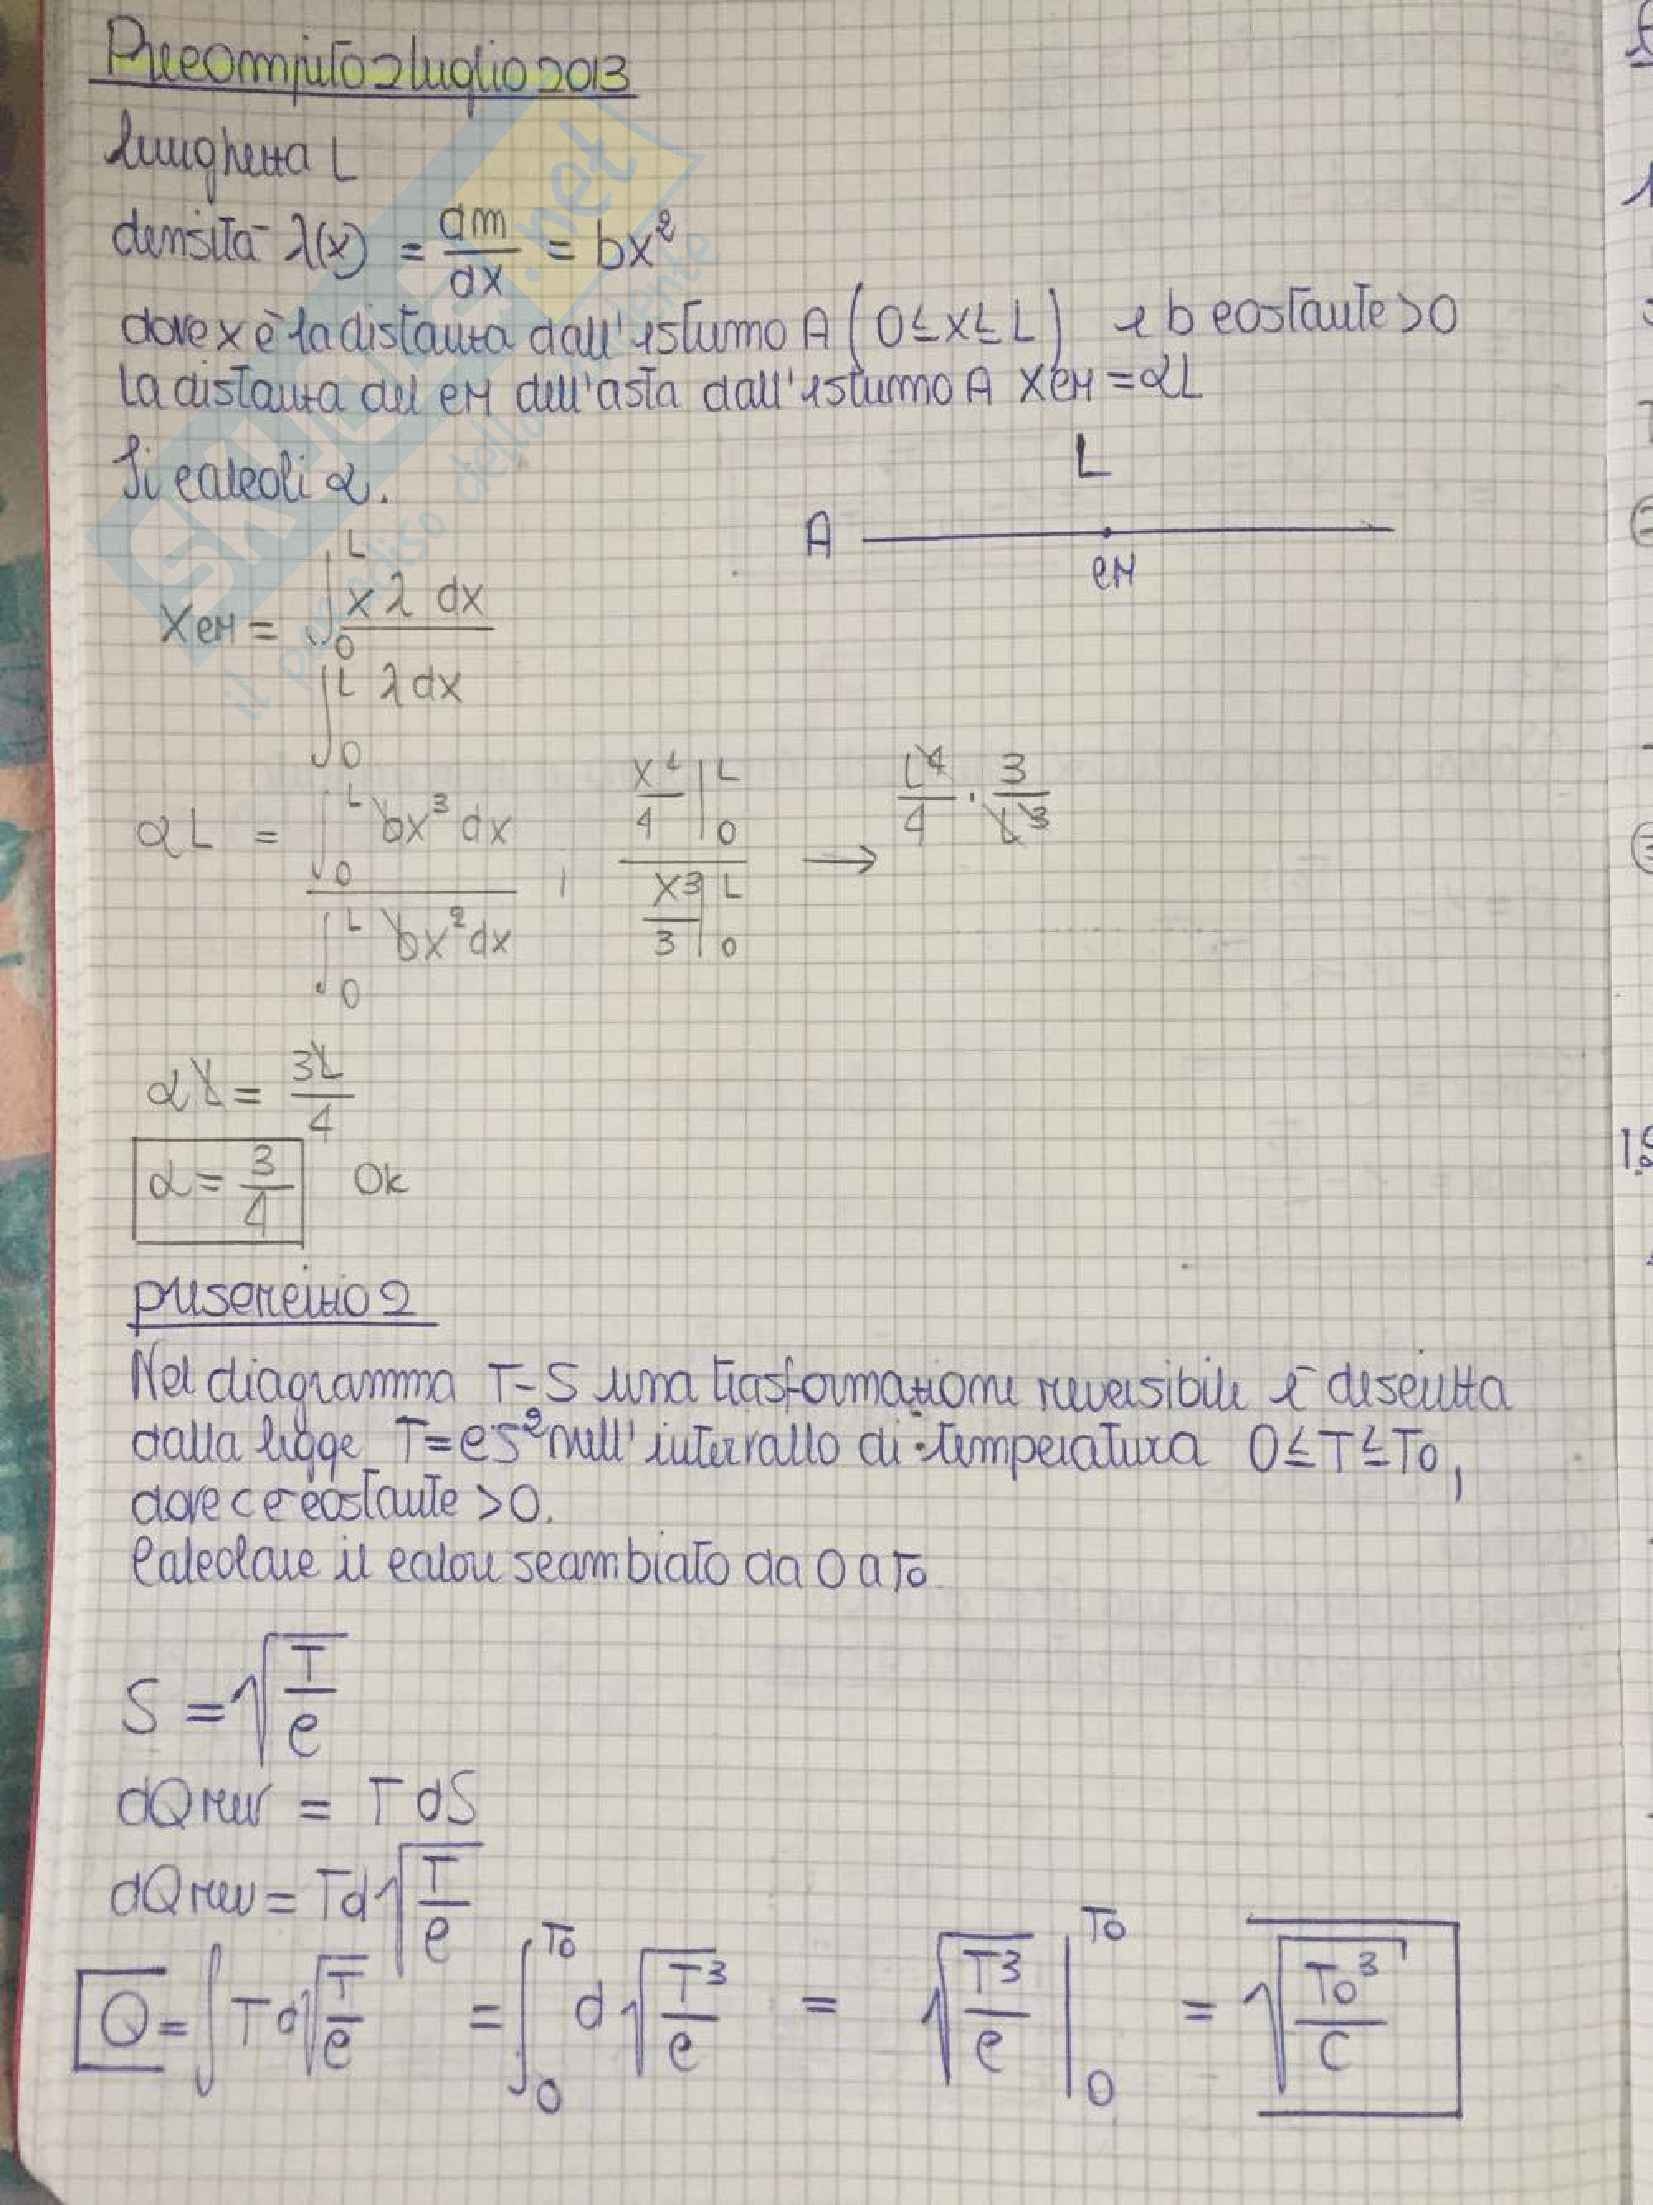 Precompito 2 luglio 2013
lunghezza L
densità λ(x) = dm/dx = bx²
dove x è la distanza dall'estremo A (0 ≤ x ≤ L) e b costante > 0
La distanza del CM dell'asta dall'estremo A XCM = αL
Si calcoli α.
L
A
CM
XCM = ∫₀ᴸ x λ dx / ∫₀ᴸ λ dx
αL = ∫₀ᴸ bx³ dx / ∫₀ᴸ bx² dx , (xᴸ/4 |₀ᴸ) / (x³/3 |₀ᴸ) → L⁴/4 · 3/L³
αL = 3L/4
α = 3/4 Ok
presercizio 2
Nel diagramma T-S una trasformazione reversibile è descritta
dalla legge T = cS² nell'intervallo di temperatura 0 ≤ T ≤ To,
dove c è costante > 0.
Calcolare il calore scambiato da 0 a To
S = √(T/c)
dQrev = T dS
dQrev = Td√(T/c)
Q = ∫ T d√(T/c) = ∫₀ᵀᵒ d√(T³/c) = √(T³/c) |₀ᵀᵒ = √(To³/c)
SKUOLA.net
il paradiso dello studente